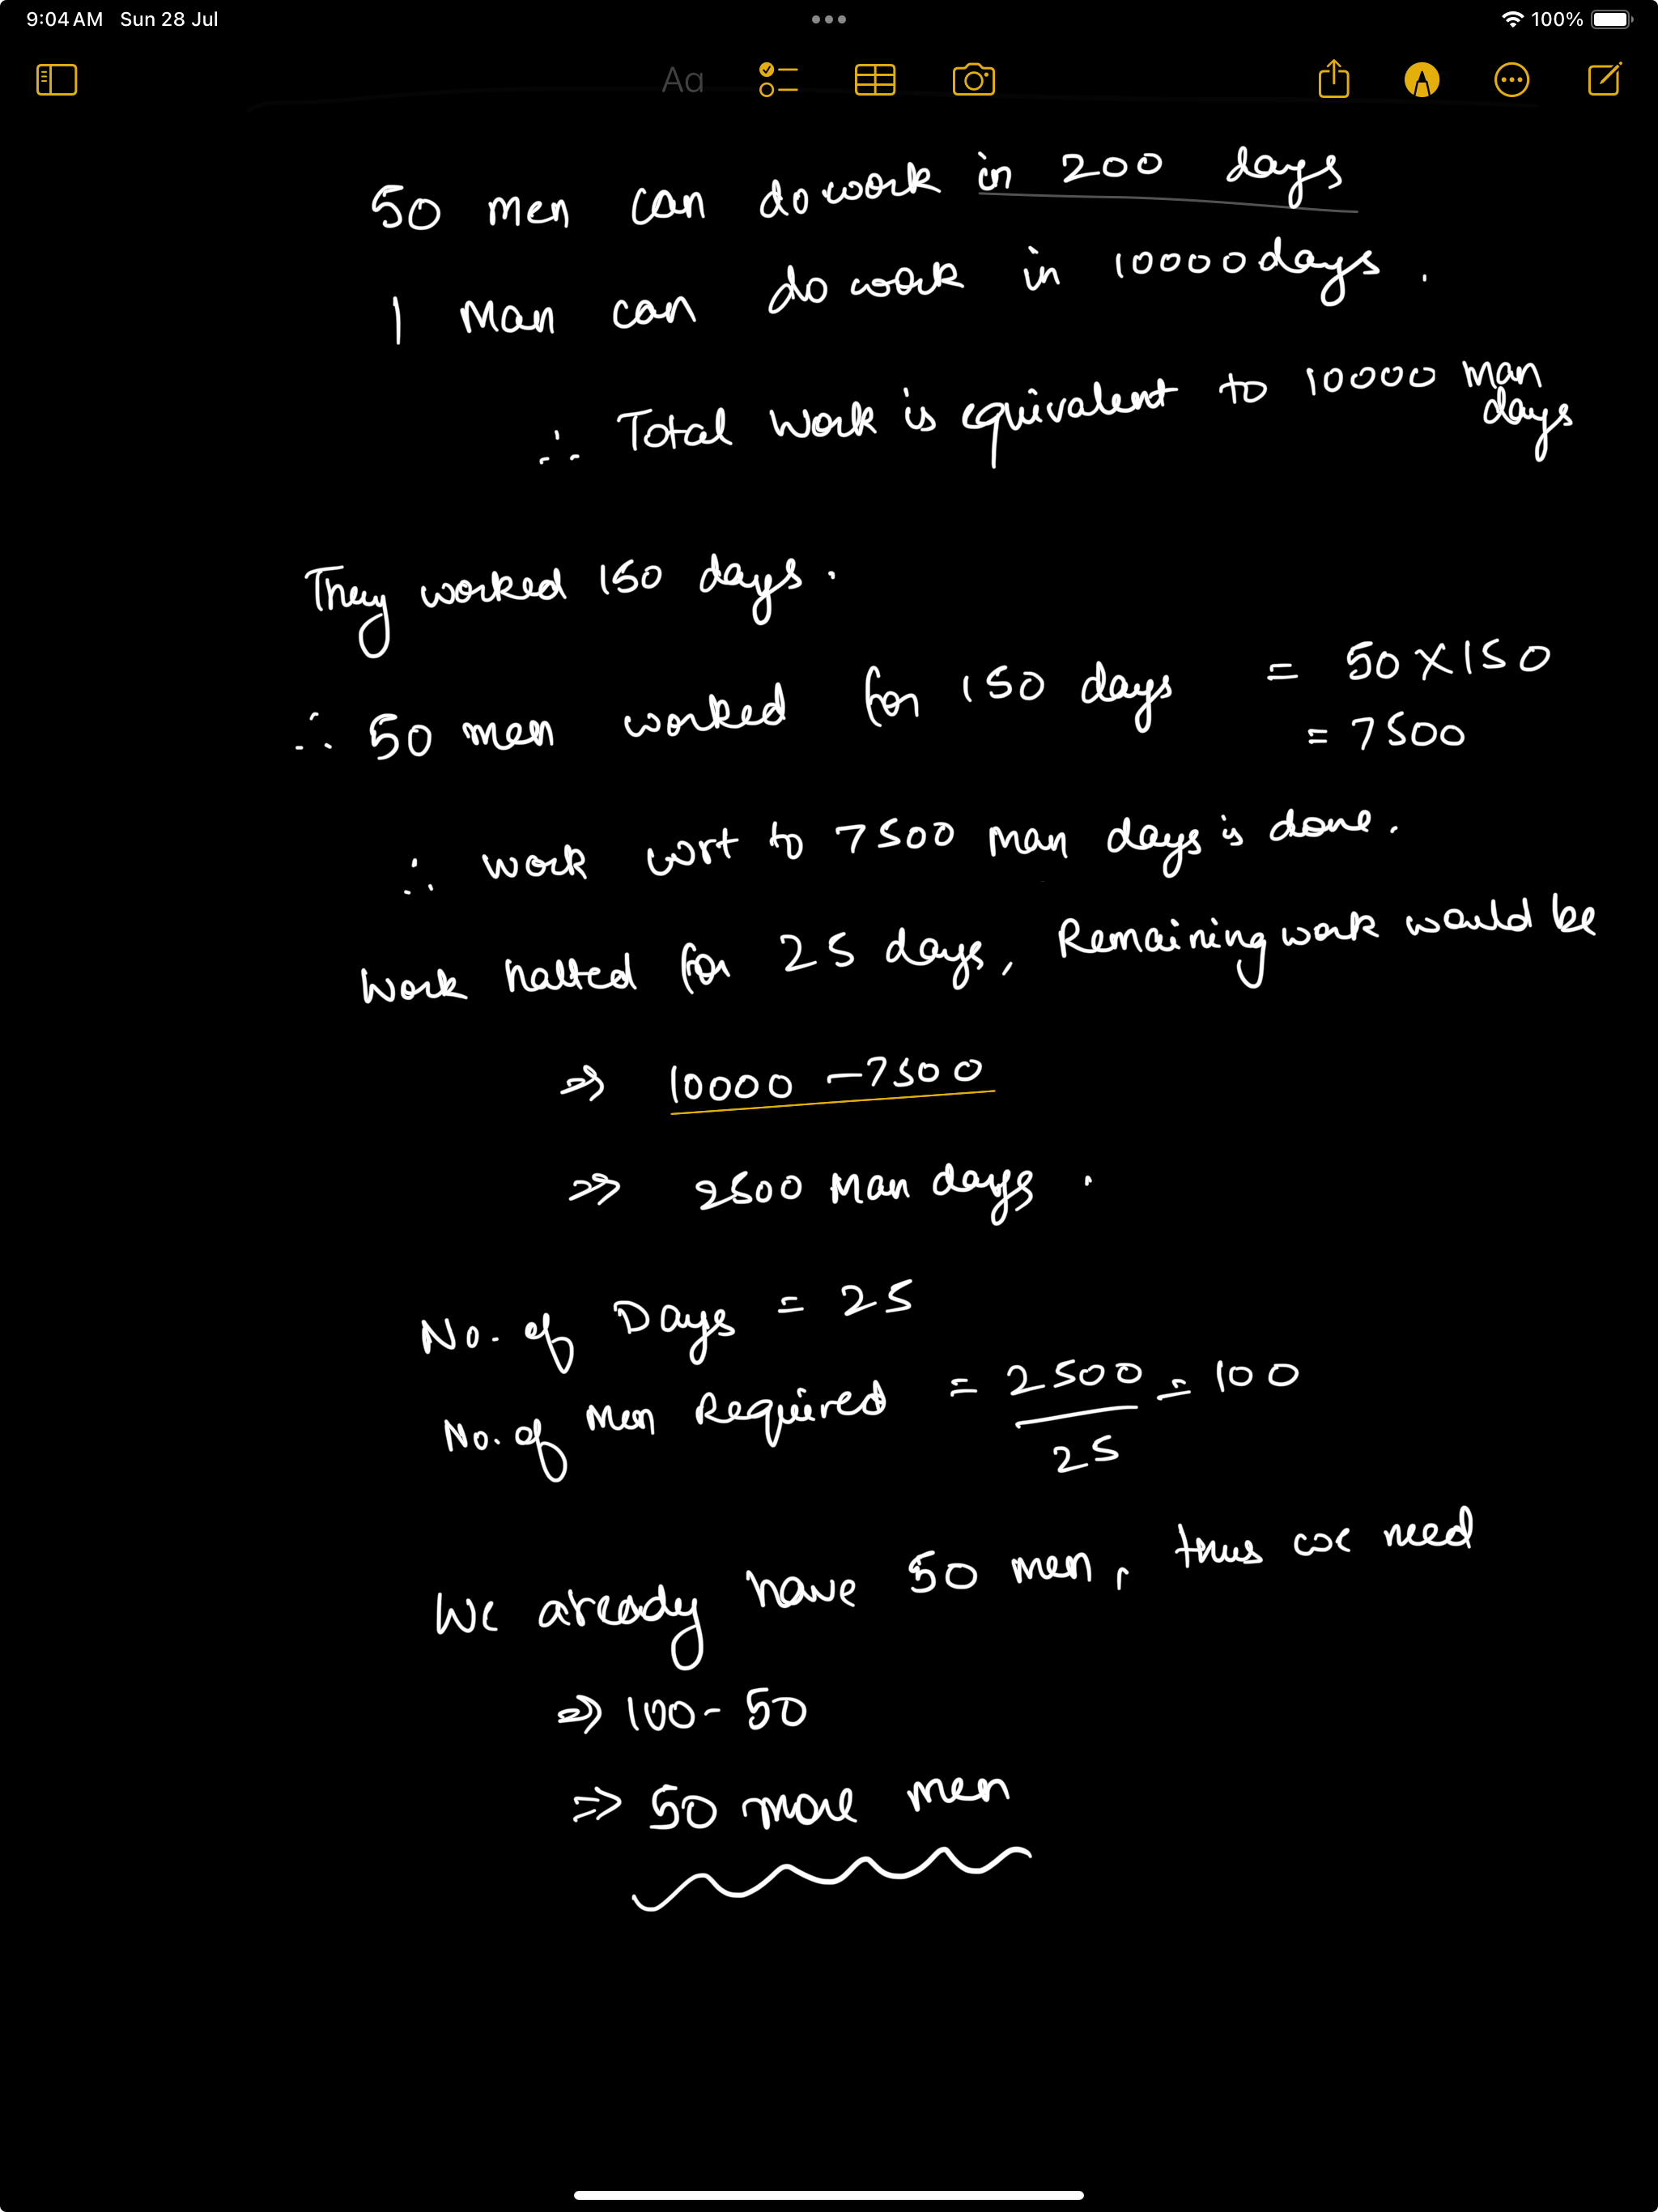 9:04 AM Sun 28 Jul
100%
Aa
50 men can do work in 200 days
1 Man can do work in 10000 days.
∴ Total work is equivalent to 10000 man days
They worked 150 days.
∴ 50 men worked for 150 days = 50 × 150
= 7500
∴ work wrt to 7500 man days is done.
Work halted for 25 days, Remaining work would be
⇒ 10000 - 7500
⇒ 2500 Man days.
No. of Days = 25
No. of Men Required = 2500/25 = 100
We already have 50 men, thus we need
⇒ 100 - 50
⇒ 50 more men